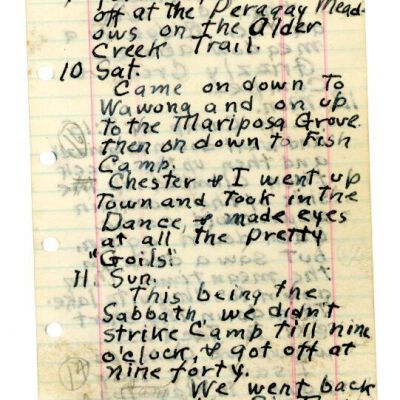 off at the Peragay Mead-
ows on the Alder
Creek Trail.
10 Sat.
Came on down to
Wawona and on up
to the Mariposa Grove
then on down to Fish
Camp.
Chester & I went up
Town and took in the
Dance, & made eyes
at all the pretty
"Goils".
11. Sun.
This being the
Sabbath, we didn't
strike Camp till nine
o'clock, & got off at
nine forty.
We went back